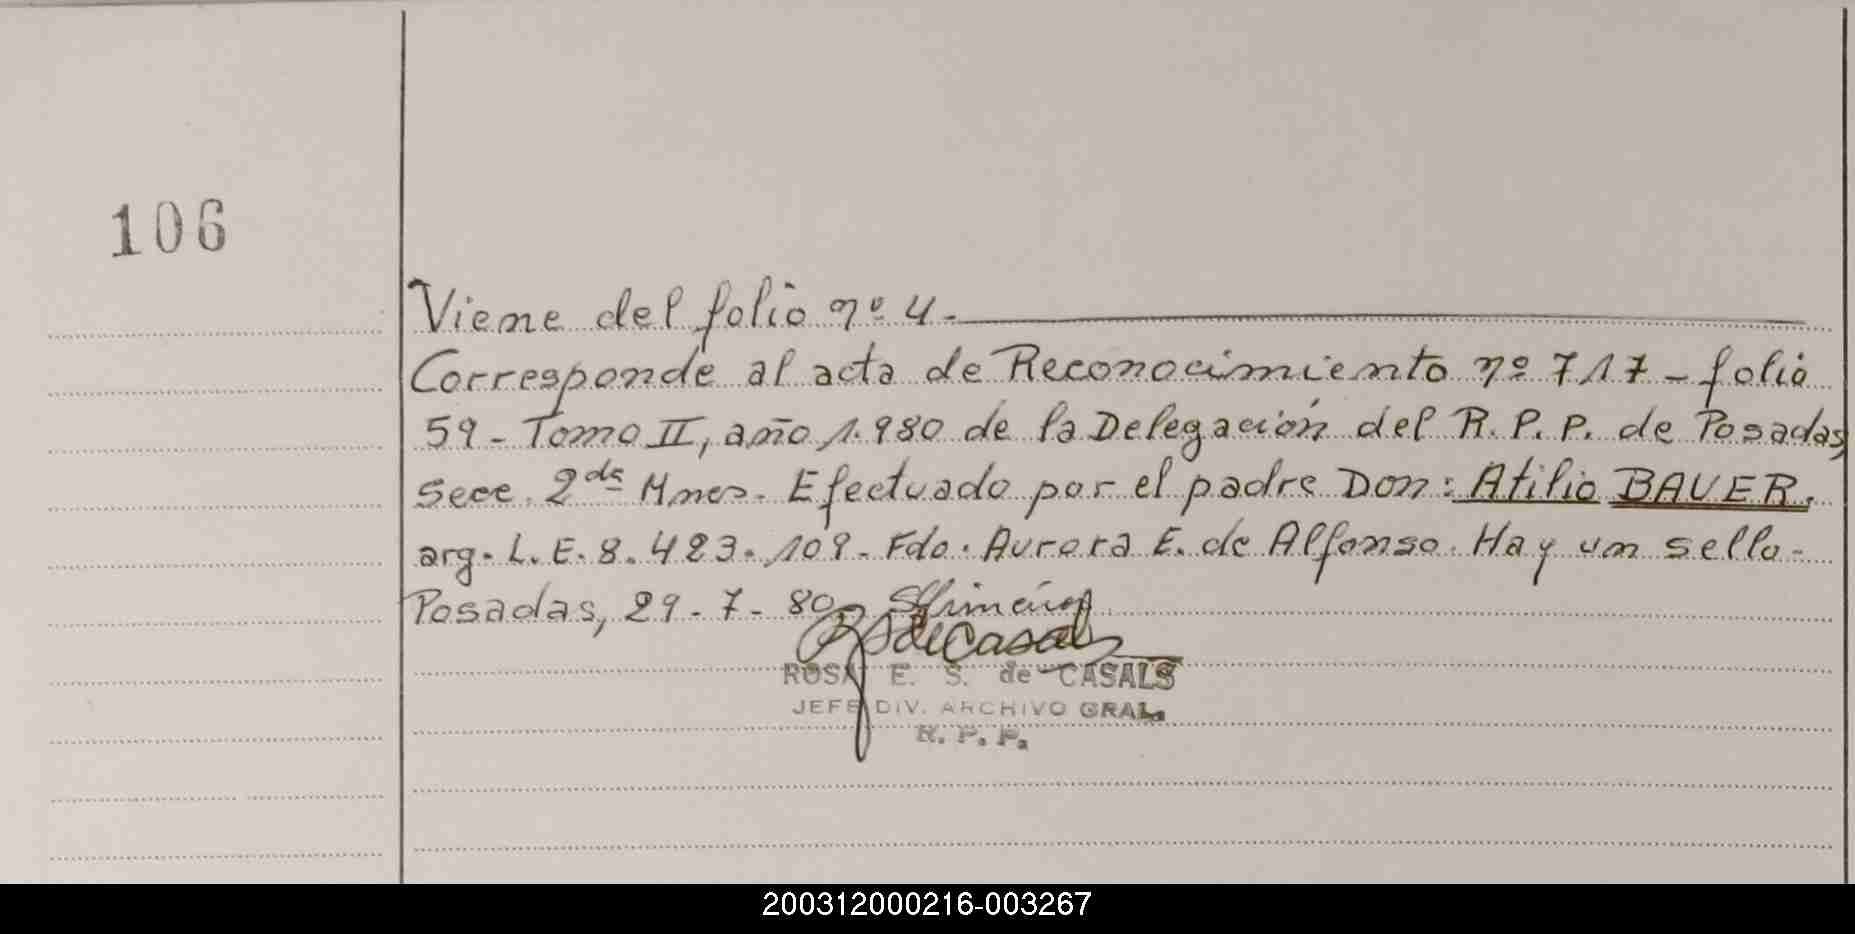 106
Viene del folio nº 4.
Corresponde al acta de Reconocimiento nº 717 - folio
59 - Tomo II, año 1.980 de la Delegación del R. P. P. de Posadas,
Secc. 2da Mnes. Efectuado por el padre Don: Atilio BAUER.
arg. L. E. 8.423.109. Fdo. Aurora E. de Alfonso. Hay un sello -
Posadas, 29 - 7 - 80
ROSA E. S. de CASALS
JEFE DIV. ARCHIVO GRAL.
R. P. P.
200312000216-003267